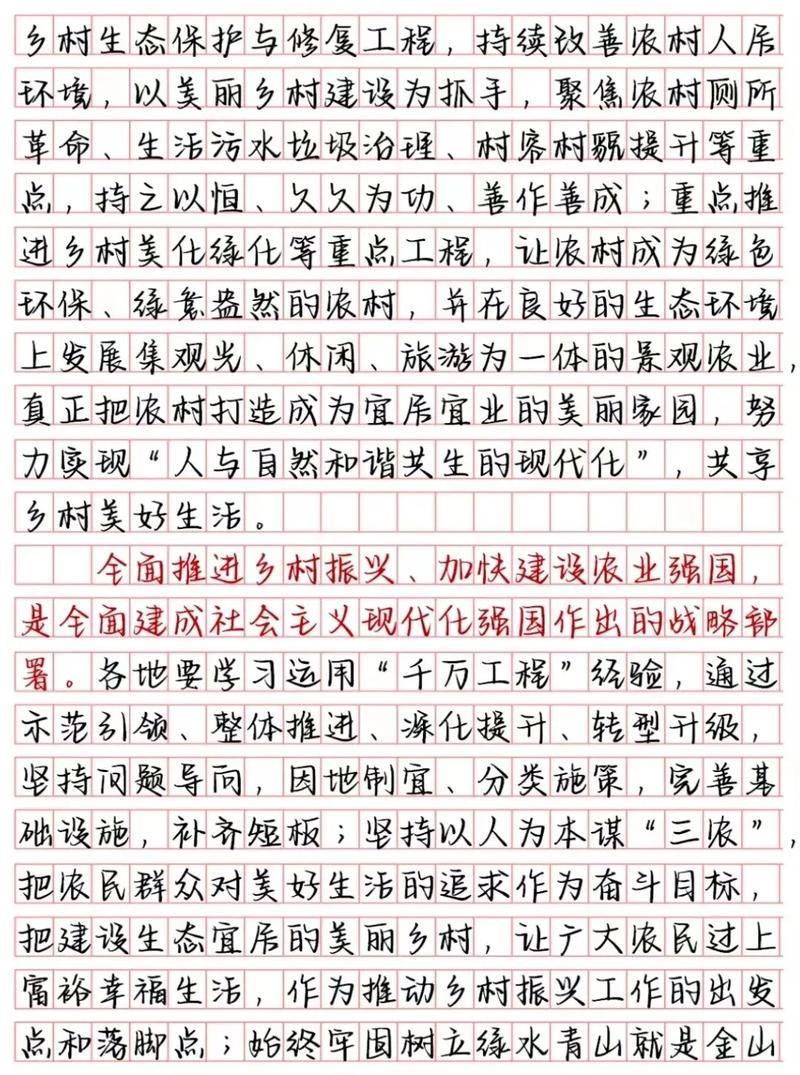 乡村生态保护与修复工程，持续改善农村人居
环境，以美丽乡村建设为抓手，聚焦农村厕所
革命、生活污水垃圾治理、村容村貌提升等重
点，持之以恒、久久为功、善作善成；重点推
进乡村美化绿化等重点工程，让农村成为绿色
环保、绿意盎然的农村，并在良好的生态环境
上发展集观光、休闲、旅游为一体的景观农业，
真正把农村打造成为宜居宜业的美丽家园，努
力实现“人与自然和谐共生的现代化”，共享
乡村美好生活。
全面推进乡村振兴、加快建设农业强国，
是全面建成社会主义现代化强国作出的战略部
署。各地要学习运用“千万工程”经验，通过
示范引领、整体推进、深化提升、转型升级，
坚持问题导向，因地制宜、分类施策，完善基
础设施，补齐短板；坚持以人为本谋“三农”，
把农民群众对美好生活的追求作为奋斗目标，
把建设生态宜居的美丽乡村，让广大农民过上
富裕幸福生活，作为推动乡村振兴工作的出发
点和落脚点；始终牢固树立绿水青山就是金山